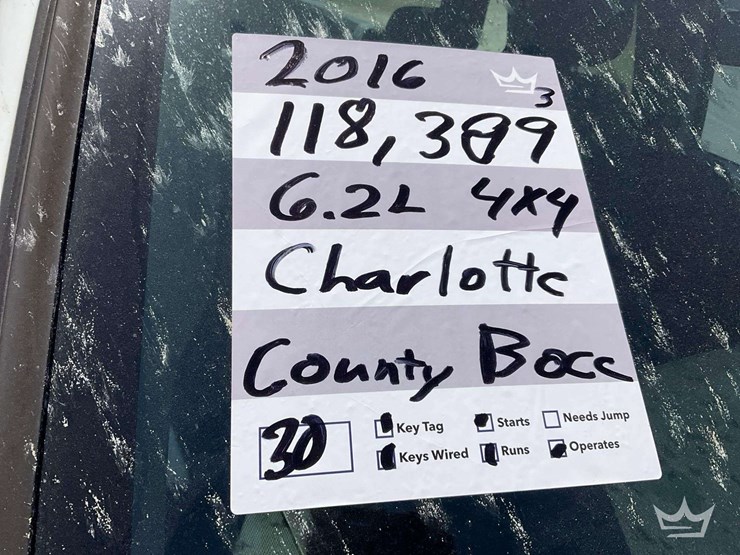 2016
3
6.2L 4x4
Charlotte
County Bocc
30
Key Tag Starts Needs Jump
Keys Wired Runs Operates